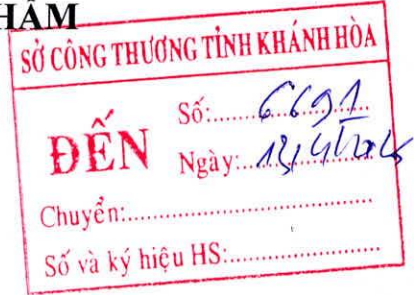 HẨM
SỞ CÔNG THƯƠNG TỈNH KHÁNH HÒA
ĐẾN
Số:.....6691.....
Ngày:.....
Chuyển:.....
Số và ký hiệu HS:.....